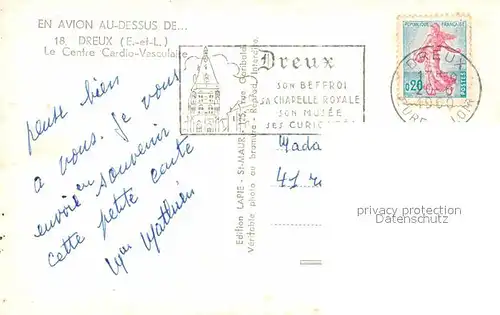 EN AVION AU-DESSUS DE...
18. DREUX (E.-et-L.)
Le Centre Cardio-Vasculaire
Dreux
SON BEFFROI
SA CHAPELLE ROYALE
SON MUSÉE
SES
REPUBLIQUE FRANÇAISE
0,20
POSTES
pense bien
a vous. Je vous
envoie en souvenir
cette petite carte
Mme Mathieu
Edition LAPIE - St-MAUR - 125, rue Garibaldi
Véritable photo au bromure - Reprod. interdite.
Mada
41 r
privacy protection
Datenschutz